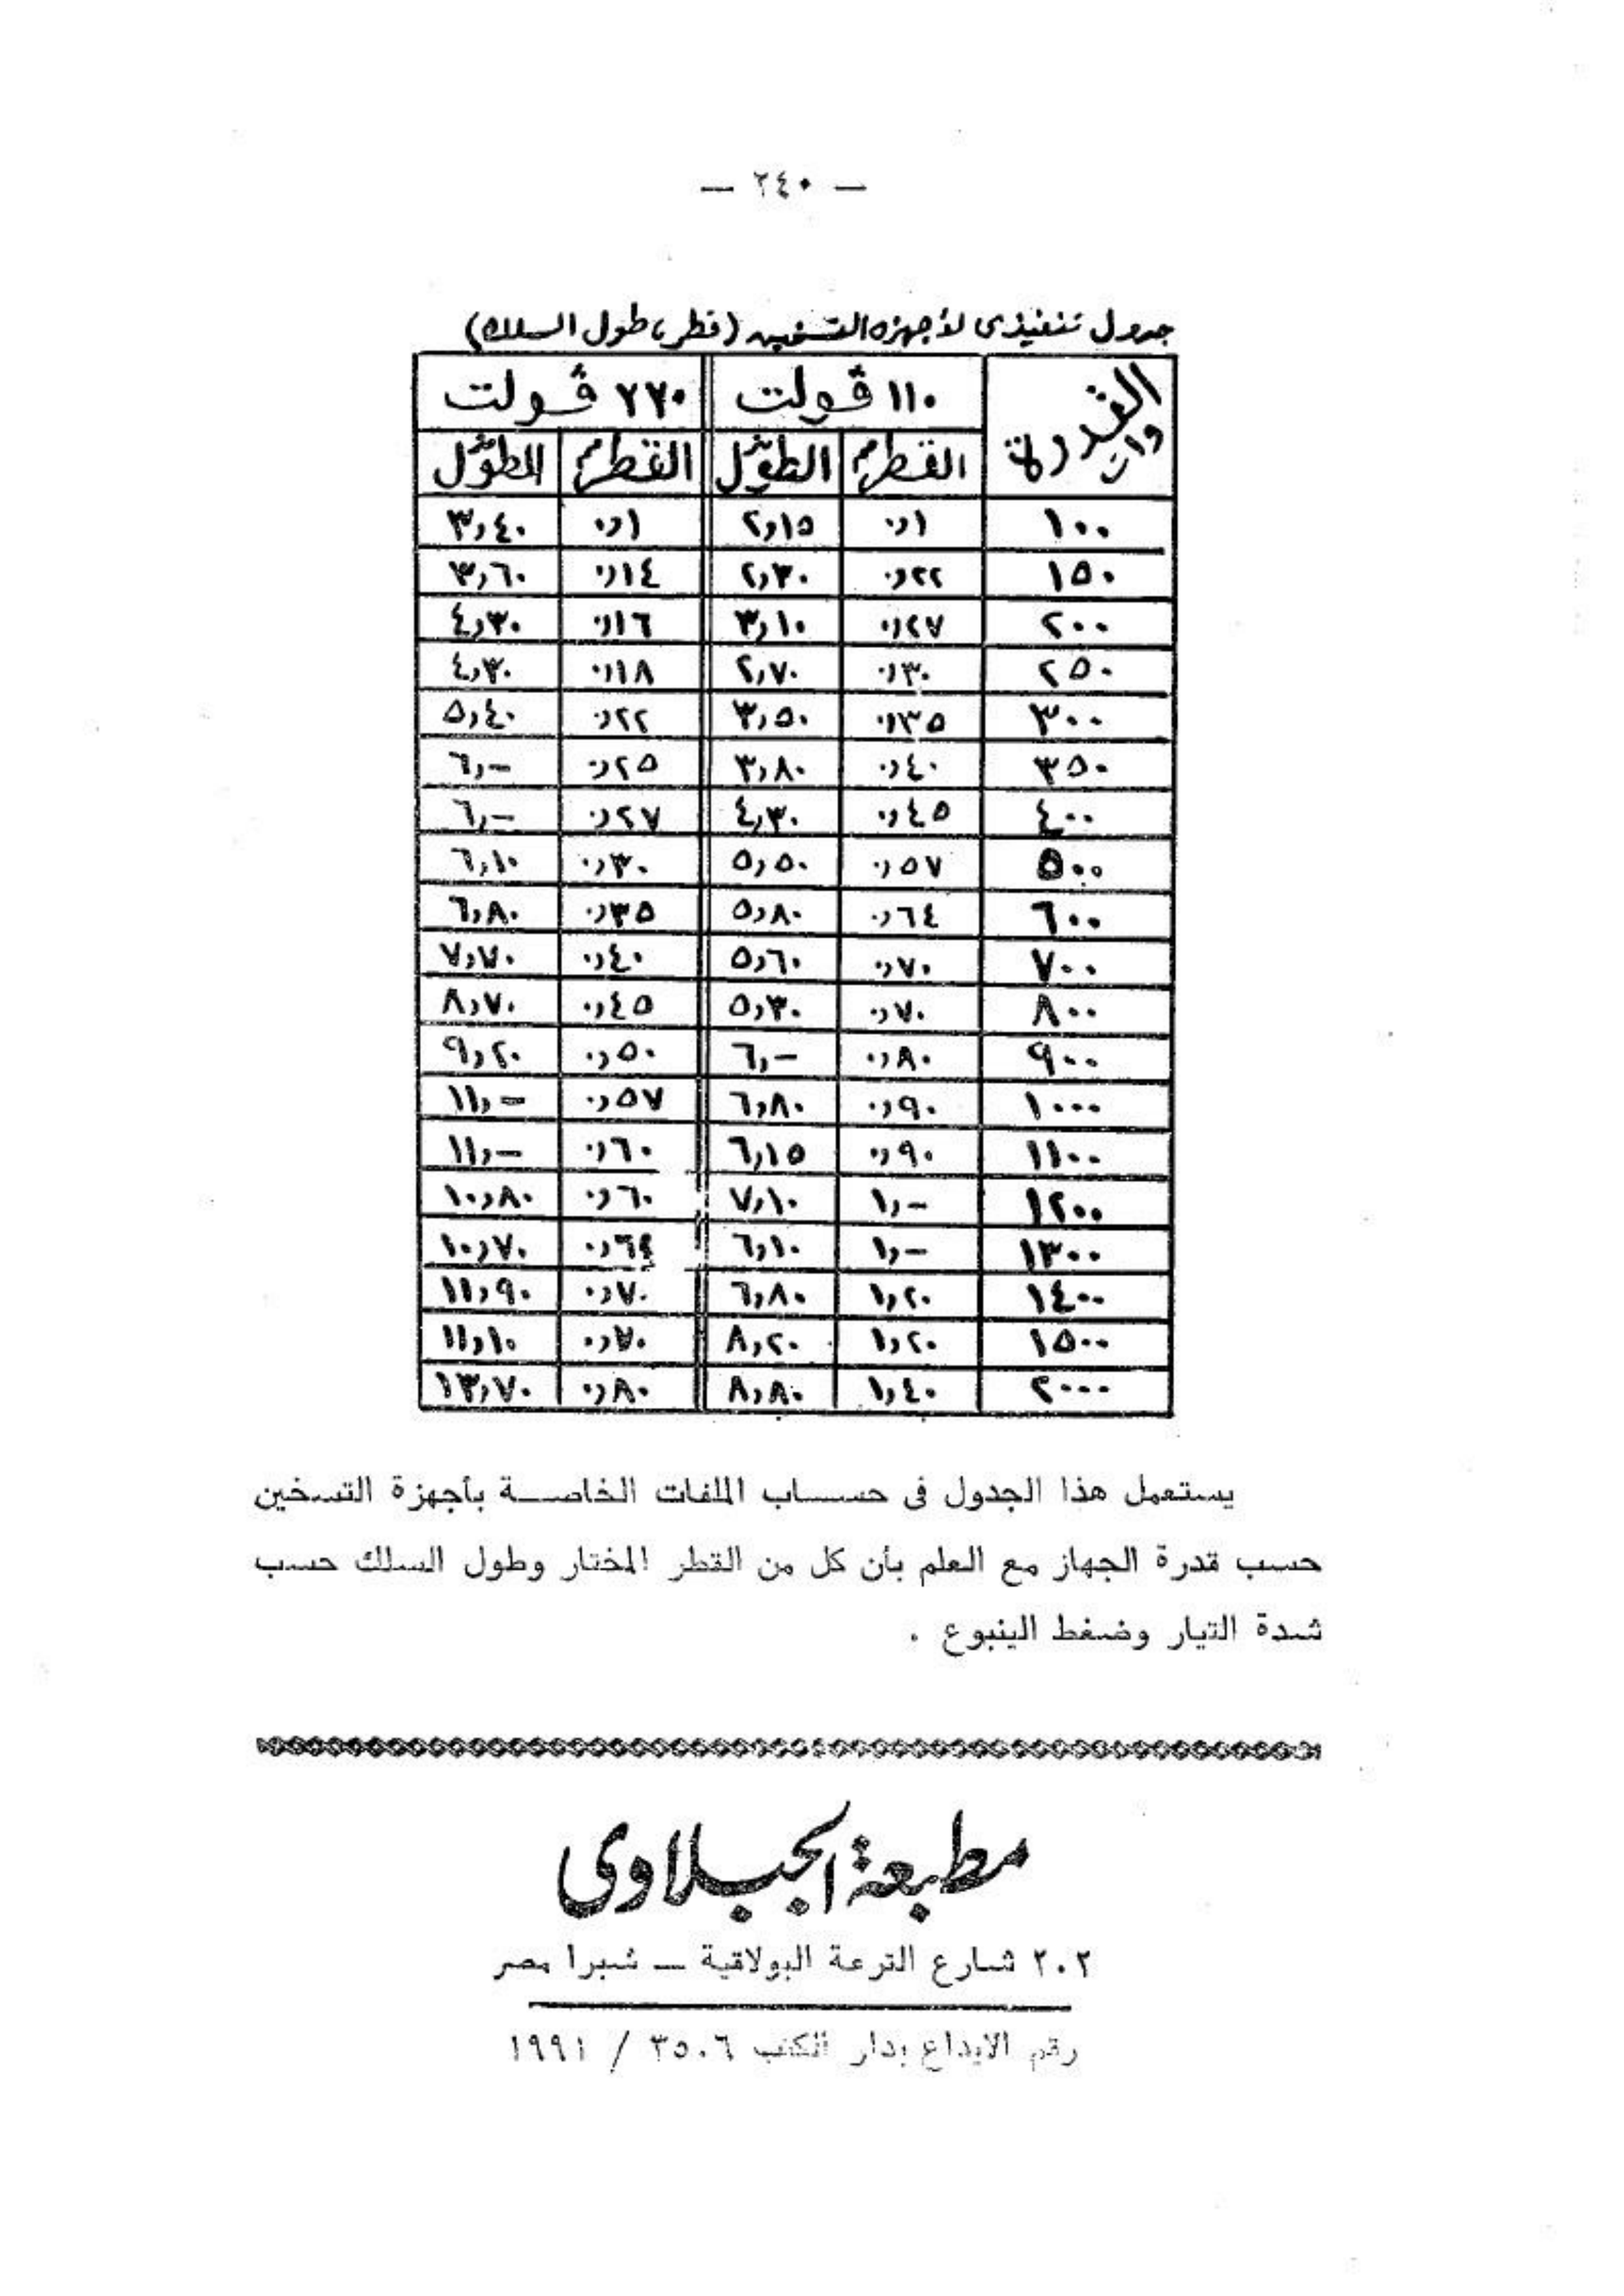 — ٢٤٠ —
جدول تنفيذى لأجهزه التسخين (قطر، طول السلك)
القدرة وات | ١١٠ ڤولت | ٢٢٠ ڤولت
القطر مم | الطول متر | القطر مم | الطول متر
١٠٠ | ٠٫١ | ٢٫١٥ | ٠٫١ | ٣٫٤٠
١٥٠ | ٠٫٢٢ | ٢٫٣٠ | ٠٫١٤ | ٣٫٦٠
٢٠٠ | ٠٫٢٧ | ٣٫١٠ | ٠٫١٦ | ٤٫٣٠
٢٥٠ | ٠٫٣٠ | ٢٫٧٠ | ٠٫١٨ | ٤٫٣٠
٣٠٠ | ٠٫٣٥ | ٣٫٥٠ | ٠٫٢٢ | ٥٫٤٠
٣٥٠ | ٠٫٤٠ | ٣٫٨٠ | ٠٫٢٥ | ٦٫−
٤٠٠ | ٠٫٤٥ | ٤٫٣٠ | ٠٫٢٧ | ٦٫−
٥٠٠ | ٠٫٥٧ | ٥٫٥٠ | ٠٫٣٠ | ٦٫١٠
٦٠٠ | ٠٫٦٤ | ٥٫٨٠ | ٠٫٣٥ | ٦٫٨٠
٧٠٠ | ٠٫٧٠ | ٥٫٦٠ | ٠٫٤٠ | ٧٫٧٠
٨٠٠ | ٠٫٧٠ | ٥٫٣٠ | ٠٫٤٥ | ٨٫٧٠
٩٠٠ | ٠٫٨٠ | ٦٫− | ٠٫٥٠ | ٩٫٢٠
١٠٠٠ | ٠٫٩٠ | ٦٫٨٠ | ٠٫٥٧ | ١١٫−
١١٠٠ | ٠٫٩٠ | ٦٫١٥ | ٠٫٦٠ | ١١٫−
١٢٠٠ | ١٫− | ٧٫١٠ | ٠٫٦٠ | ١٠٫٨٠
١٣٠٠ | ١٫− | ٦٫١٠ | ٠٫٦٤ | ١٠٫٧٠
١٤٠٠ | ١٫٢٠ | ٦٫٨٠ | ٠٫٧٠ | ١١٫٩٠
١٥٠٠ | ١٫٢٠ | ٨٫٢٠ | ٠٫٧٠ | ١١٫١٠
٢٠٠٠ | ١٫٤٠ | ٨٫٨٠ | ٠٫٨٠ | ١٣٫٧٠
يستعمل هذا الجدول فى حساب الملفات الخاصة بأجهزة التسخين
حسب قدرة الجهاز مع العلم بأن كل من القطر المختار وطول السلك حسب
شدة التيار وضغط الينبوع .
مطبعة الجبلاوى
٢٠٢ شارع الترعة البولاقية — شبرا مصر
رقم الايداع بدار الكتب ٣٥٠٦ / ١٩٩١